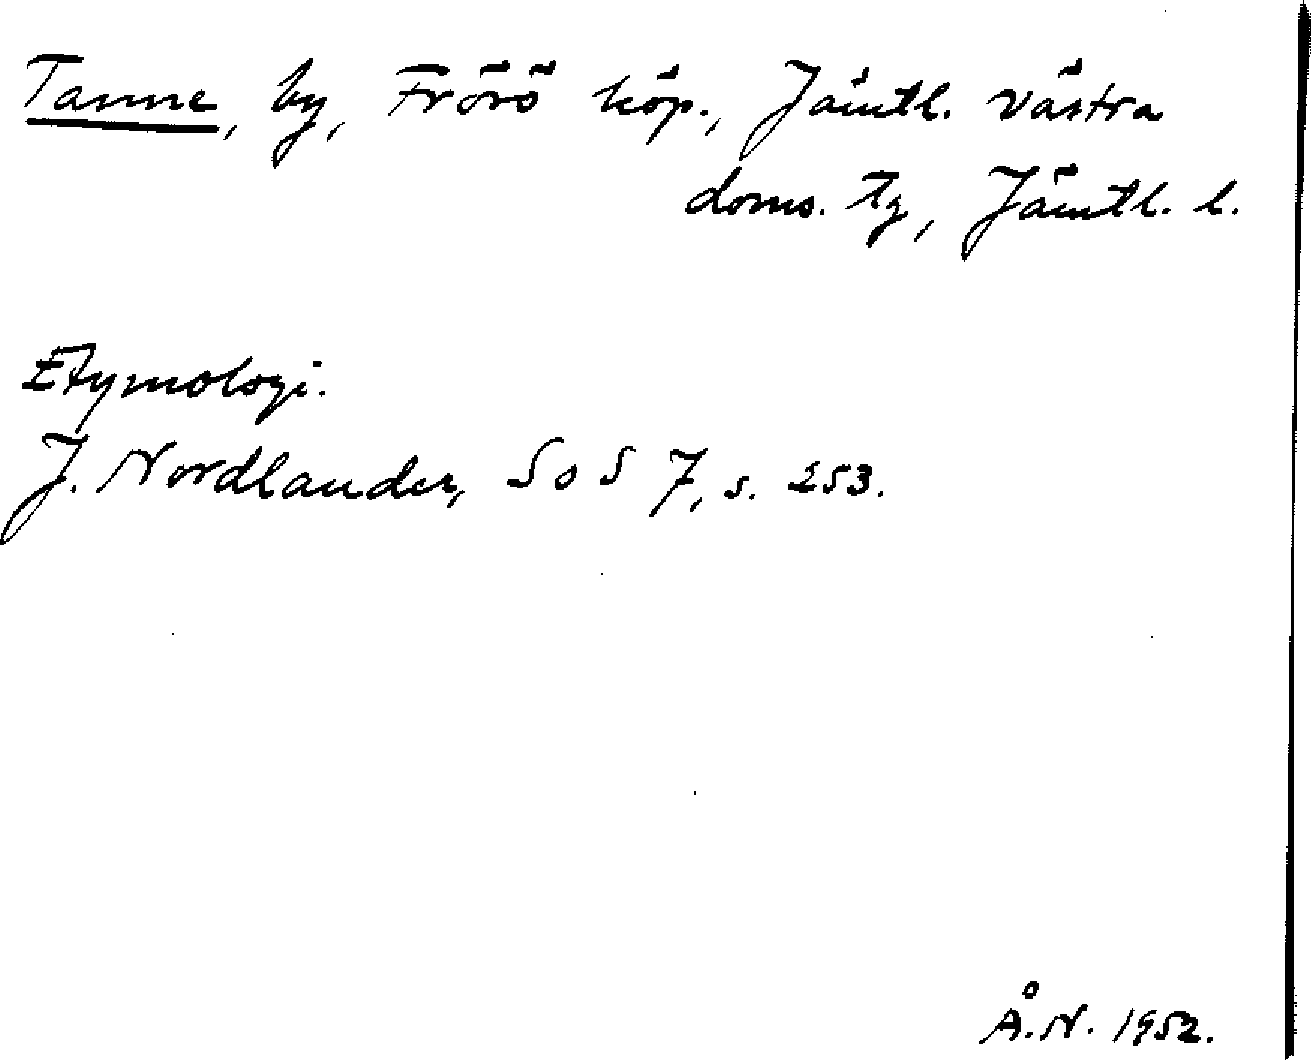 Tanne, by, Frösö köp., Jämtl. västra
doms. tg, Jämtl. l.
Etymologi.
J. Nordlander, SoS 7, s. 253.
Å.N. 1952.